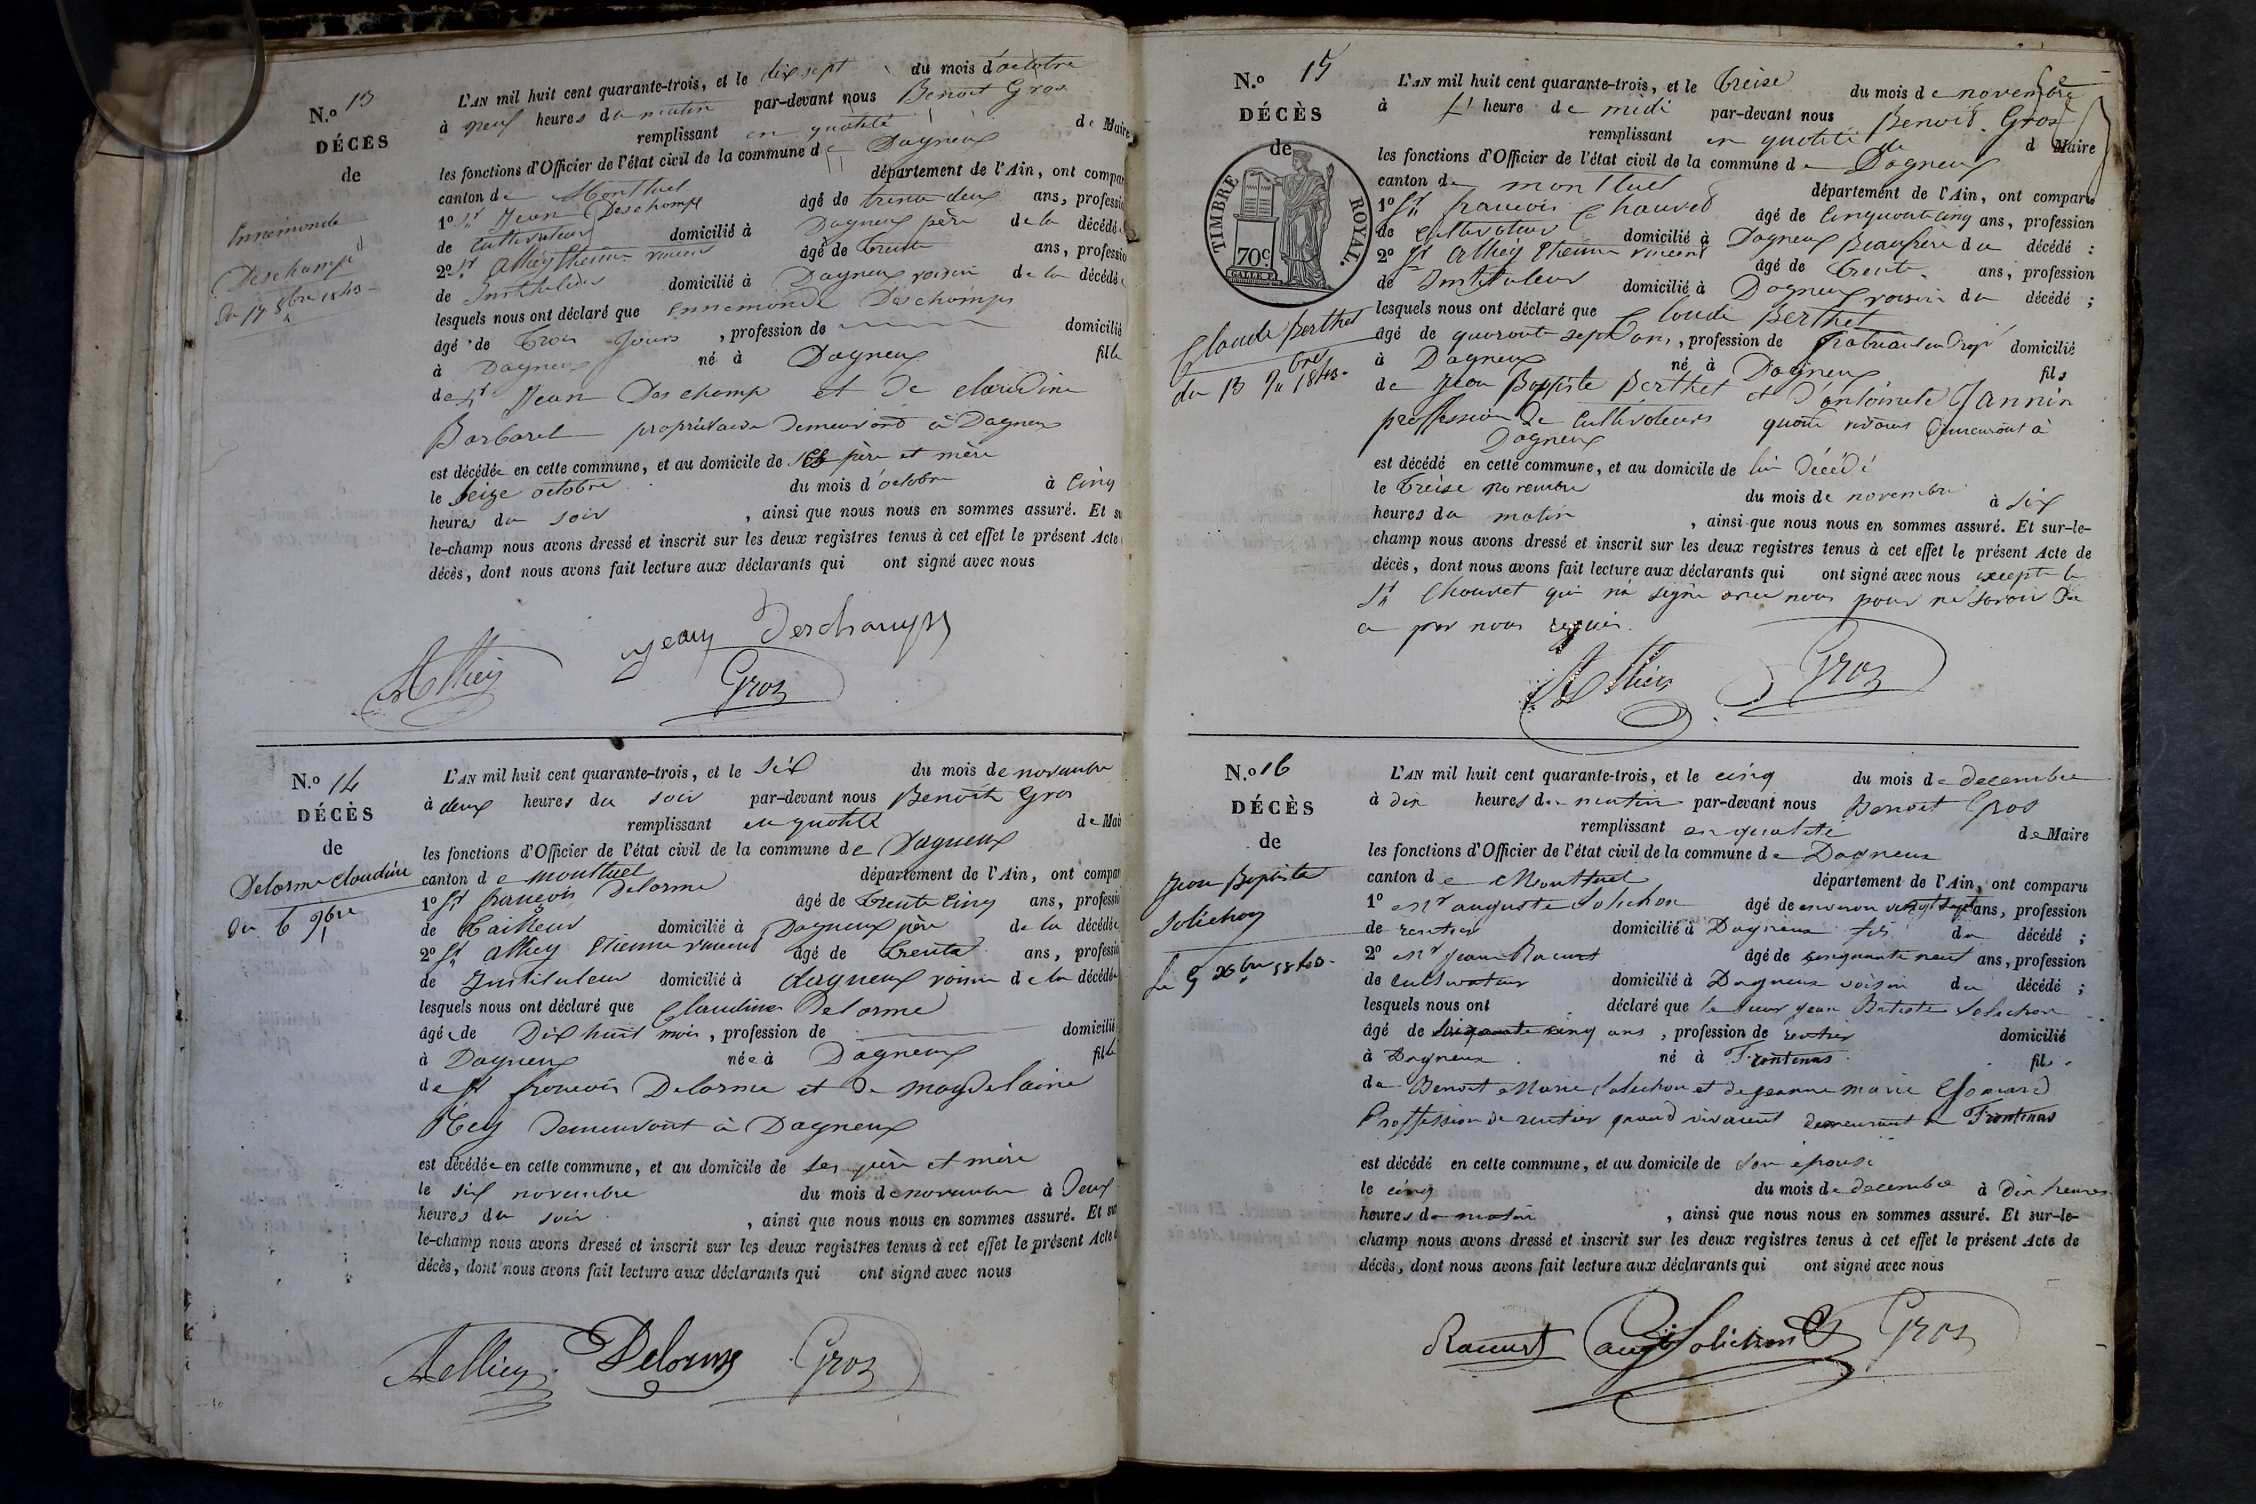 N.º 13
DÉCÈS
de
Ennemonde
Deschamp
du 17 8bre 1843
L'AN mil huit cent quarante-trois, et le dix sept du mois d'octobre
à neuf heures du matin par-devant nous Benoit Gros
remplissant en qualité de Maire
les fonctions d'Officier de l'état civil de la commune de Dagneux
canton de Montluel département de l'Ain, ont compar
1º Sr Jean Deschamp âgé de trente deux ans, professio
de cultivateur domicilié à Dagneux père de la décédée
2º Sr Alhey Etienne vincent âgé de trente ans, professio
de Instituteur domicilié à Dagneux voisin de la décédée
lesquels nous ont déclaré que Ennemonde Deschamps
âgé de trois jours, profession de domicilié
à Dagneux né à Dagneux fille
de Sr Jean Deschamp et de claudine
Barbaret propriétaire demeurant à Dagneux
est décédée en cette commune, et au domicile de ses père et mère
le seize octobre du mois d'octobre à cinq
heures du soir, ainsi que nous nous en sommes assuré. Et su
le-champ nous avons dressé et inscrit sur les deux registres tenus à cet effet le présent Acte
décès, dont nous avons fait lecture aux déclarants qui ont signé avec nous
jean Deschamps
Alhey Gros
N.º 14
DÉCÈS
de
Delorme claudine
du 6 9bre
L'AN mil huit cent quarante-trois, et le six du mois de novembre
à deux heures du soir par-devant nous Benoit Gros
remplissant en qualité de Mair
les fonctions d'Officier de l'état civil de la commune de Dagneux
canton de montluel département de l'Ain, ont compar
1º Sr françois Delorme âgé de trente cinq ans, professio
de tailleur domicilié à Dagneux père de la décédée
2º Sr Alhey Etienne vincent âgé de trente ans, professio
de Instituteur domicilié à dagneux voisin de la décédée
lesquels nous ont déclaré que Claudine Delorme
âgée de Dix huit mois, profession de domicilié
à Dagneux née à Dagneux fille
de Sr françois Delorme et de magdelaine
Rey demeurant à Dagneux
est décédée en cette commune, et au domicile de ses père et mère
le six novembre du mois de novembre à deux
heures du soir, ainsi que nous nous en sommes assuré. Et sur
le-champ nous avons dressé et inscrit sur les deux registres tenus à cet effet le présent Acte d
décès, dont nous avons fait lecture aux déclarants qui ont signé avec nous
Alhey Delorme Gros
N.º 15
DÉCÈS
de
TIMBRE ROYAL.
70 c.
Claude Berthet
du 13 9bre 1843
L'AN mil huit cent quarante-trois, et le treise du mois de novembre
à 1 heure de midi par-devant nous Benoit Gros
remplissant en qualité de d Maire
les fonctions d'Officier de l'état civil de la commune de Dagneux
canton de montluel département de l'Ain, ont comparu
1º Sr françois Chauvet âgé de cinquante cinq ans, profession
de cultivateur domicilié à Dagneux Beaufrère du décédé :
2º Sr Alhey Etienne vincent âgé de trente ans, profession
de Instituteur domicilié à Dagneux voisin du décédé ;
lesquels nous ont déclaré que Claude Berthet
âgé de quarante sept ans, profession de domicilié
à Dagneux né à Dagneux fils
de Jean Baptiste Berthet et d'antoinete Jannin
proffession de cultivateurs quand vivaient demeurant à
Dagneux
est décédé en cette commune, et au domicile de lui décédé
le treise novembre du mois de novembre à six
heures du matin, ainsi que nous nous en sommes assuré. Et sur-le-
champ nous avons dressé et inscrit sur les deux registres tenus à cet effet le présent Acte de
décès, dont nous avons fait lecture aux déclarants qui ont signé avec nous excepté le
Sr Chauvet qui n'a signé avec nous pour ne savoir de
ce par nous requis.
Alhey Gros
N.º 16
DÉCÈS
de
Jean Baptiste
Solichon
le 5 xbre 1843
L'AN mil huit cent quarante-trois, et le cinq du mois de decembre
à dix heures du matin par-devant nous Benoit Gros
remplissant en qualité de Maire
les fonctions d'Officier de l'état civil de la commune de Dagneux
canton de Montluel département de l'Ain, ont comparu
1º Mr auguste Solichon âgé de environ vingt sept ans, profession
de rentier domicilié à Dagneux fils du décédé ;
2º Mr Jean Racurt âgé de cinquante neuf ans, profession
de cultivateur domicilié à Dagneux voisin du décédé ;
lesquels nous ont déclaré que le sieur jean Batiste Solichon
âgé de soixante cinq ans, profession de rentier domicilié
à Dagneux né à Frontenas fils
de Benoit Marie Solichon et de jeanne marie
Proffession de rentier quand vivaient demeurant à Frontenas
est décédé en cette commune, et au domicile de son épouse
le cinq du mois de decembre à dix heures
heures du matin, ainsi que nous nous en sommes assuré. Et sur-le-
champ nous avons dressé et inscrit sur les deux registres tenus à cet effet le présent Acte de
décès, dont nous avons fait lecture aux déclarants qui ont signé avec nous
Racurt augte Solichon Gros